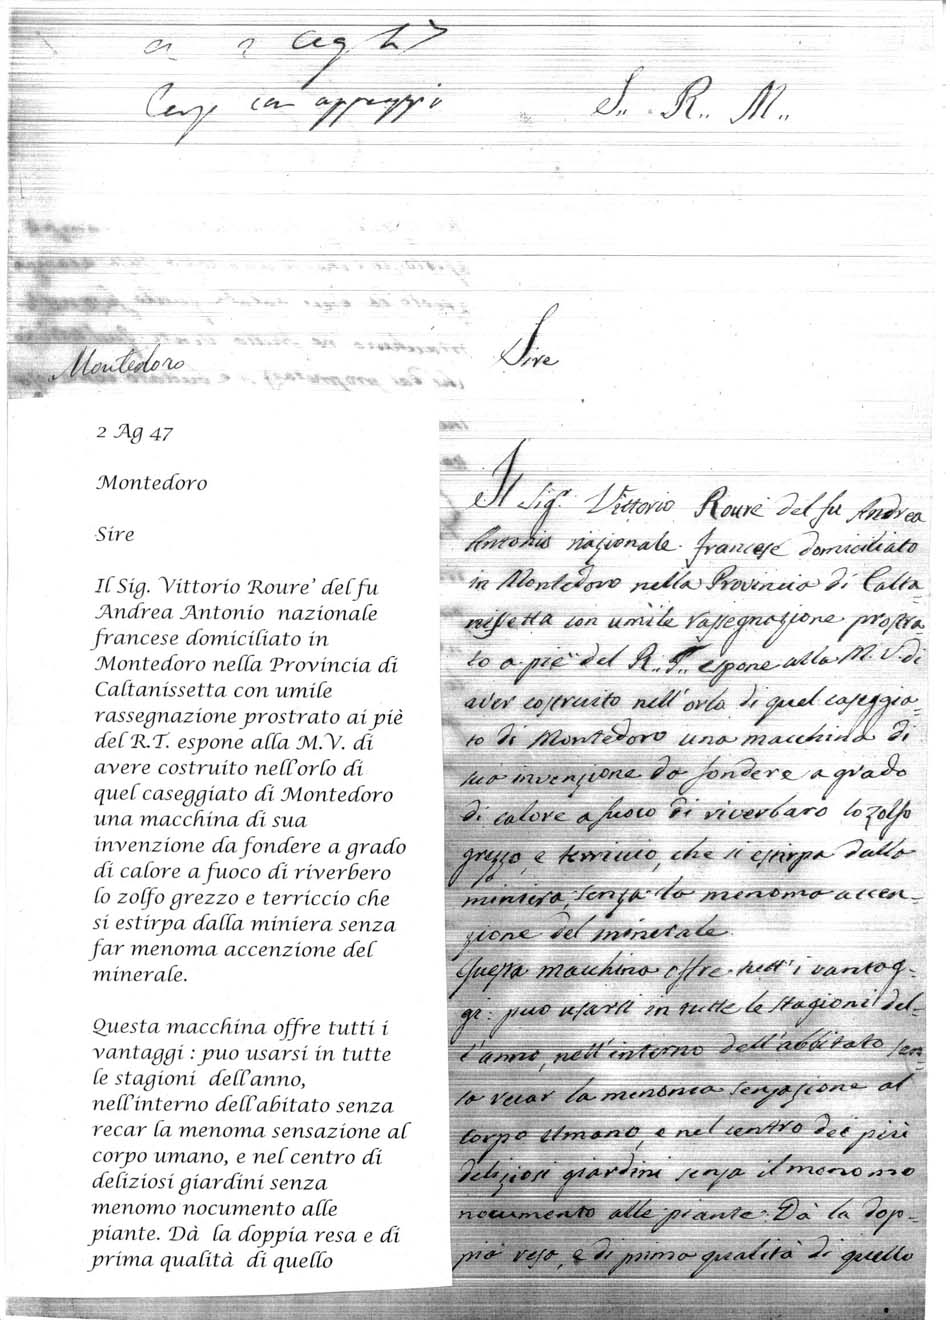 con appoggio
S.. R.. M..
Montedoro
Sire
2 Ag 47
Montedoro
Sire
Il Sig. Vittorio Roure' del fu
Andrea Antonio nazionale
francese domiciliato in
Montedoro nella Provincia di
Caltanissetta con umile
rassegnazione prostrato ai piè
del R.T. espone alla M.V. di
avere costruito nell'orlo di
quel caseggiato di Montedoro
una macchina di sua
invenzione da fondere a grado
di calore a fuoco di riverbero
lo zolfo grezzo e terriccio che
si estirpa dalla miniera senza
far menoma accenzione del
minerale.
Questa macchina offre tutti i
vantaggi : puo usarsi in tutte
le stagioni dell'anno,
nell'interno dell'abitato senza
recar la menoma sensazione al
corpo umano, e nel centro di
deliziosi giardini senza
menomo nocumento alle
piante. Dà la doppia resa e di
prima qualità di quello
Il Sig.r Vittorio Rouré del fu Andrea
Antonio nazionale francese domiciliato
in Montedoro nella Provincia di Calta=
nissetta con umile rassegnazione prostra=
to a piè del R.. T.. espone alla M. V. di
aver costruito nell'orlo di quel caseggia=
to di Montedoro una macchina di
sua invenzione da fondere a grado
di calore a fuoco di riverbaro lo zolfo
grezzo, e terriccio, che si estirpa dalla
miniera, senza la menoma accen=
zione del minerale.
Questa macchina offre tutt'i vantag=
gi: può usarsi in tutte le stagioni del=
l'anno, nell'interno dell'abbitato sen=
za recar la menoma senzazione al
corpo umano, e nel centro dei più
deliziosi giardini senza il menomo
nocumento alle piante. Dà la dop=
pia resa, e di prima qualità di quello